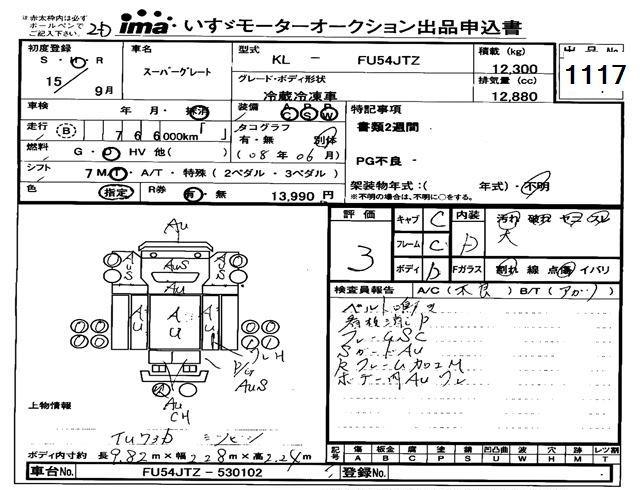 ※赤太枠内は必ず
ボールペンで
ご記入下さい。
ima いすゞモーターオークション出品申込書
初度登録
S・H・R
15 9月
車名
スーパーグレート
型式
KL - FU54JTZ
グレード・ボディ形状
冷蔵冷凍車
積載 (kg)
12,300
排気量 (cc)
12,880
出品No
1117
車検 年 月・抹消
装備 AC PS PW
走行 B 766000km
タコグラフ
有・無 別体
(08年06月)
燃料 G・D HV 他( )
シフト 7MT・A/T・特殊(2ペダル・3ペダル)
色 指定 R券 有・無 13,990円
特記事項
書類2週間
PG不良
架装物年式:( 年式)・不明
※不明の場合は、不明に○をする。
評価
3
キャブ C
フレーム C
ボディ b
内装 D
汚れ 破れ ヤニ スレ
大
Fガラス 割れ 線 点傷 イバリ
検査員報告 A/C(不良) B/T(アガリ)
ベルト鳴き
看板消しP
フレームSC
SガードAU
RフレームカエM
ボデー内AU
AU
AUS
AU
AUS
AU
AU
AU
AU
PG
AUS
AU
CH
上物情報
ボディ内寸約 長9.82m×幅2.28m×高2.24m
記号 傷 板金 腐 塗 錆 凹凸曲 波 穴 ホシ レツ割
A B C P S U W H M T
車台No. FU54JTZ-530102
登録No.